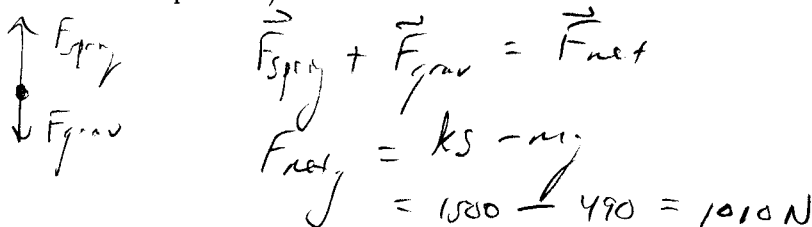 F_spring
F_grav
F⃗_spring + F⃗_grav = F⃗_net
F_net,y = ks - mg
= 1500 - 490 = 1010 N